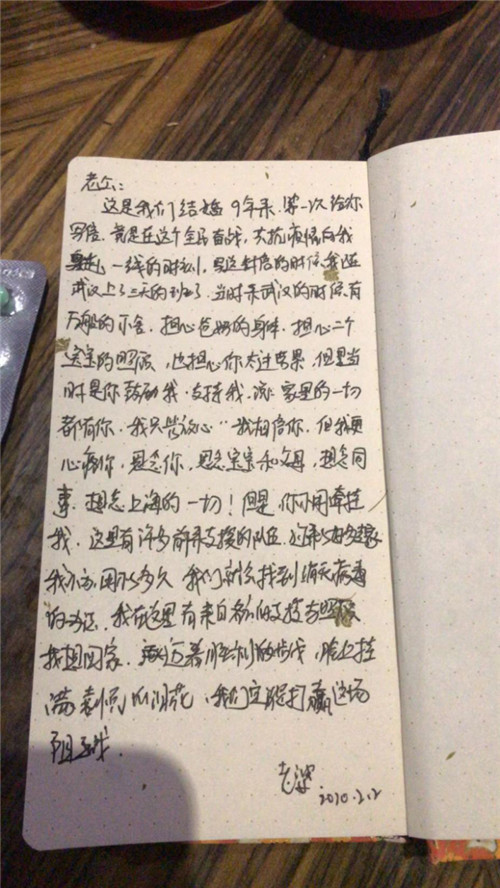 老公:
这是我们结婚9年来,第一次给你
写信,竟是在这个全民奋战,大抗疫情的我
一线的时刻,写这封信的时候我在
武汉上了三天的班了,当时来武汉的时候有
万般的不舍,担心爸妈的身体,担心二个
宝宝的照顾,也担心你太过劳累,但是当
时是你鼓励我,支持我,说:家里的一切
都有你,我只管放心"我相信你,但我更
心疼你,思念你,思念宝宝和父母,想念同
事,想念上海的一切!但是你不用牵挂
我,这里有许多前来支援的队伍,
我不孤困,不多久我们就会找到消灭病毒
的办法,我在这里有来自的支援与照顾
我想回家,迈着胜利的步伐,脸上挂
满喜悦的泪花,我们定能打赢这场
阻击战.
老婆
2020.2.2